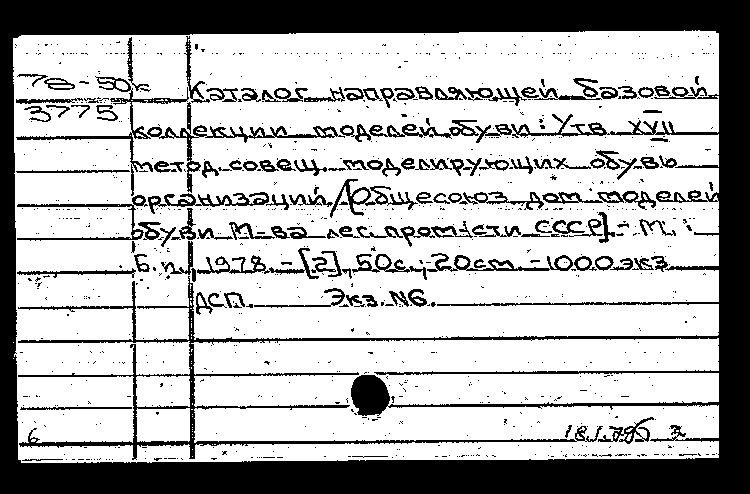 78-50к Каталог направляющей базовой
3775
коллекции моделей обуви: Утв. XVII
метод. совещ. моделирующих обувь
организаций/[Общесоюз дом моделей
обуви М-ва лег. пром-сти СССР].- М.:
Б.и., 1978.-[2], 50с.; 20см.-1000экз
ДСП. Экз. N6.
6 18.1.79